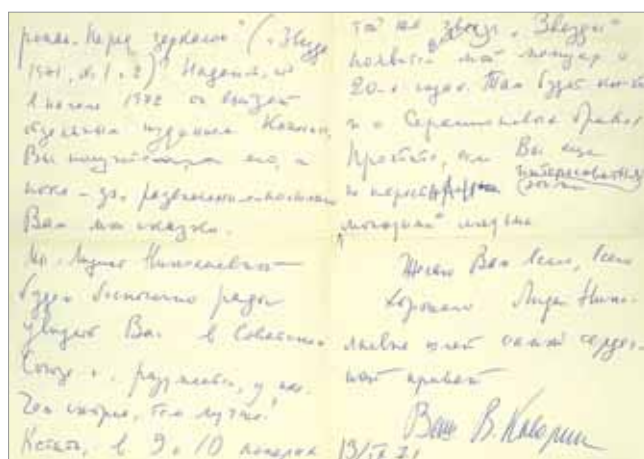 роман „Перед зеркалом“ („Звезда
1971, № 1, 2)“ Надеюсь, что
в начале 1972 он выйдет
отдельным изданием. Конечно,
Вы получите его, а
пока – для развлечения посылаю
Вам мои сказки.
Мы с Лидией Николаевной
будем бесконечно рады
увидеть Вас в Советском
Союзе и, разумеется, у нас.
Чем скорее, тем лучше!
Кстати, в 9 и 10 номерах
той же „Звезды“
появится мой мемуар о
20-х годах. Там будет кое-что
и о Серапионовых братьях.
Простите, если Вы еще
не перестали интересоваться
этими
Желаю Вам всего, всего
хорошего. Лидия Нико-
лаевна шлет самый сердеч-
ный привет
Ваш В. Каверин
13/IX 71